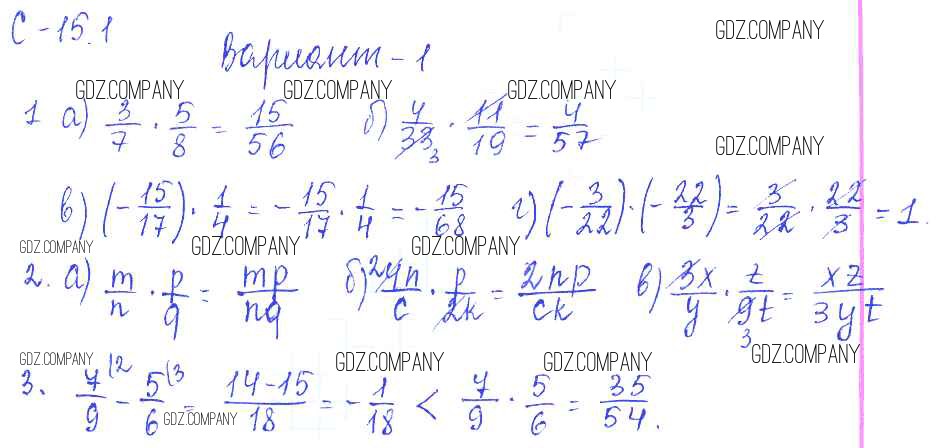 С-15.1
GDZ.COMPANY
Вариант-1
GDZ.COMPANY GDZ.COMPANY GDZ.COMPANY
1 а) 3/7 · 5/8 = 15/56 б) 4/33 3 · 11/19 = 4/57
GDZ.COMPANY
в) (-15/17) · 1/4 = -15/17 · 1/4 = -15/68 г) (-3/22) · (-22/3) = 3/22 · 22/3 = 1.
GDZ.COMPANY GDZ.COMPANY GDZ.COMPANY
2. а) m/n · p/q = mp/nq б) 2 4n/c · p/2k = 2np/ck в) 3x/y · z/9t 3 = xz/3yt
GDZ.COMPANY GDZ.COMPANY GDZ.COMPANY GDZ.COMPANY
3. 7/9 (2 - 5/6 (3 = 14-15/18 = -1/18 < 7/9 · 5/6 = 35/54.
GDZ.COMPANY